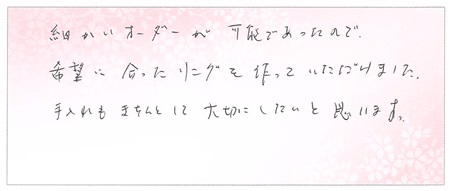 細かいオーダーが可能であったので、
希望に合ったリングを作っていただけました。
手入れもきちんとして大切にしたいと思います。